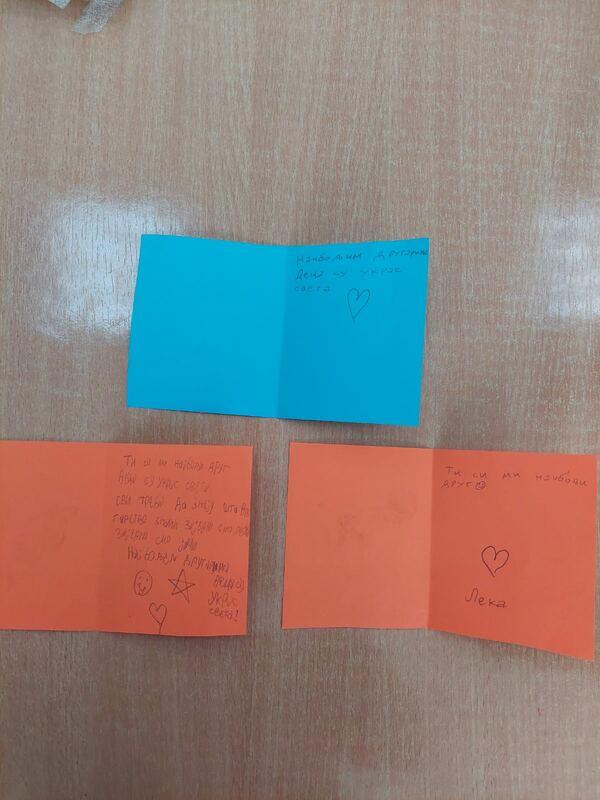 Наибољим другарима
Деца су украс
света
Ти си ми најбољи друг
Деца су украс света
сви треба да знају шта
заједно смо
Најбољем другару
Деца су
украс
света!
Ти си ми наибољи
друг
Лека